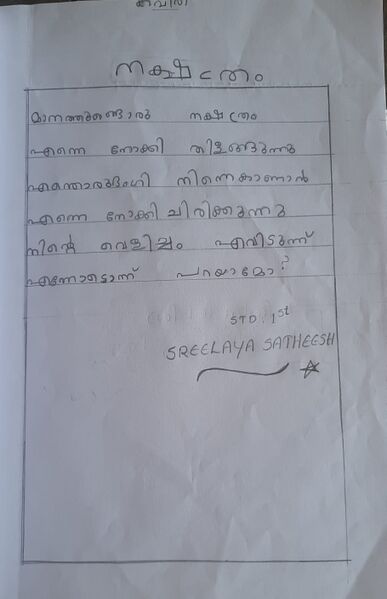 കവിത
നക്ഷത്രം
മാനത്തുണ്ടൊരു നക്ഷത്രം
എന്നെ നോക്കി തിളങ്ങുന്നു
എന്തൊരുഭംഗി നിന്നെകാണാൻ
എന്നെ നോക്കി ചിരിക്കുന്നു
നിന്റെ വെളിച്ചം എവിടുന്ന്
എന്നോടൊന്ന് പറയാമോ?
STD. 1st
SREELAYA SATHEESH